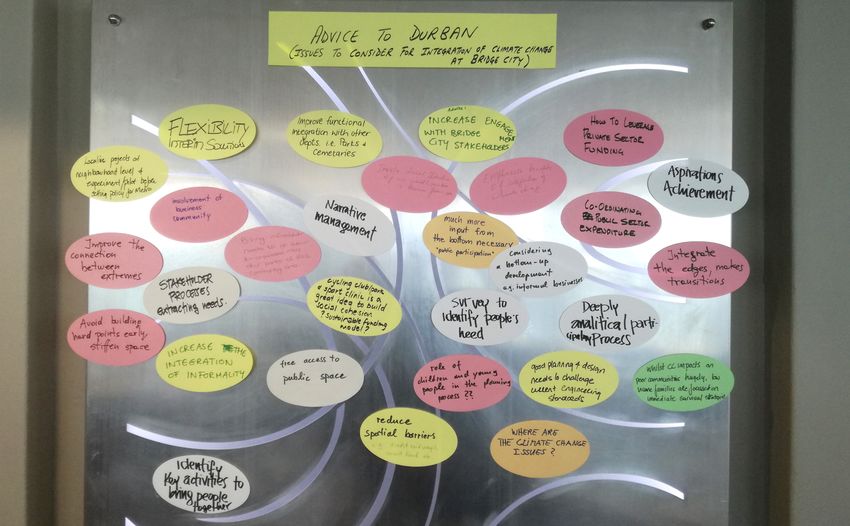 ADVICE TO DURBAN
(ISSUES TO CONSIDER FOR INTEGRATION OF CLIMATE CHANGE
AT BRIDGE CITY)
FLEXIBILITY
INTERIM SOLUTIONS
Improve functional
integration with other
depts. i.e. Parks &
Cemetaries
INCREASE ENGAGEMENT
WITH BRIDGE
CITY STAKEHOLDERS
HOW TO LEVERAGE
PRIVATE SECTOR
FUNDING
Localise projects at
neighbourhood level &
experiment/pilot before
policy for Metro
involvement of
business
community
Aspirations
Achievement
Narrative
management
much more
input from
the bottom necessary
"public participation"
CO-ORDINATING
PUBLIC SECTOR
EXPENDITURE
Improve the
connection
between
extremes
considering
a bottom-up
development
e.g. informal businesses
Integrate
the edges, makes
transitions
STAKEHOLDER
PROCESSES
extracting needs.
cycling club/park
& sport clinic is a
great idea to build
social cohesion
? Sustainable funding
model?
Survey to
identify people's
need
Deeply
analitical parti-
cipatory Process
Avoid building
hard points early,
stiffen space
INCREASE THE
INTEGRATION
OF INFORMALITY
free access to
public space
role of
children and young
people in the planning
process ??
good planning & design
needs to challenge
current engineering
standards
Whilst CC impacts on
poor communities hugely,
families are focussed on
immediate survival strategies
reduce
spatial barriers
WHERE ARE
THE CLIMATE CHANGE
ISSUES?
Identify
Key activities to
bring people
together